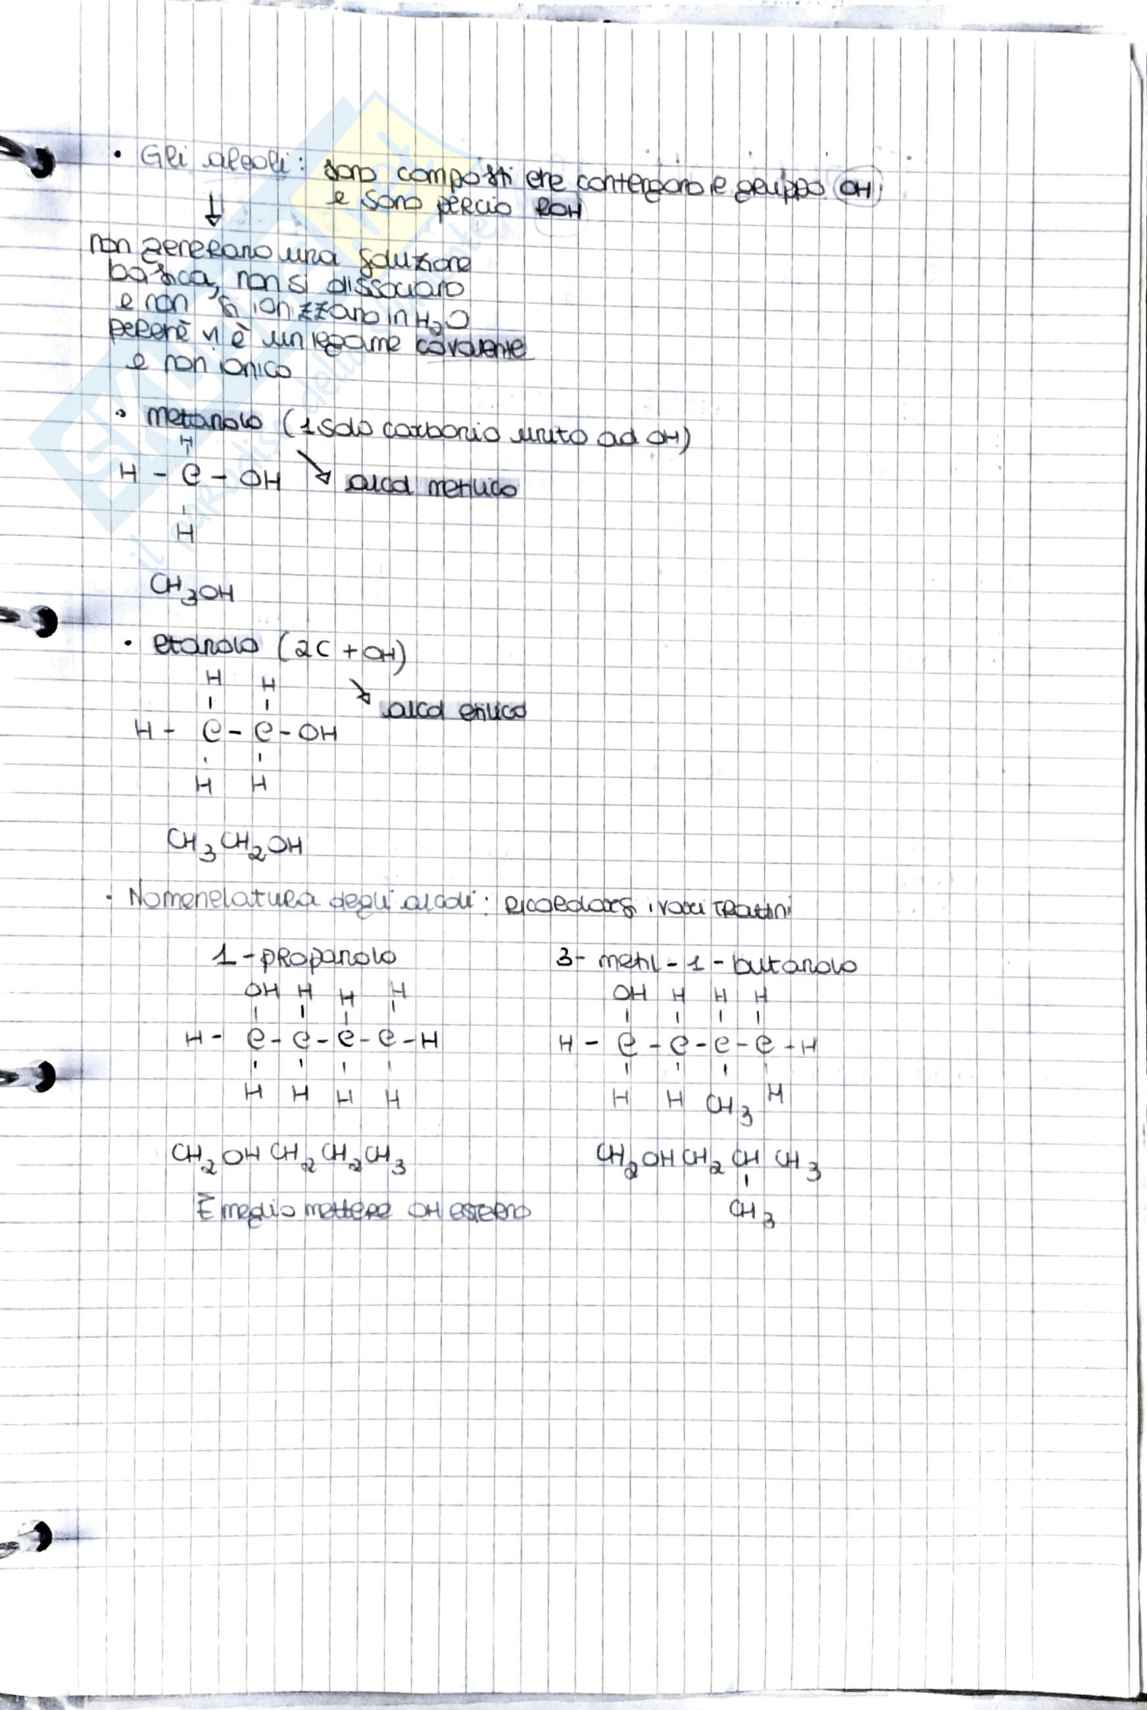 • Gli alcoli: sono composti che contengono il gruppo OH
e sono perciò ROH
↓
non generano una soluzione
basica, non si dissociano
e non si ionizzano in H₂O
perché vi è un legame covalente
e non ionico
• metanolo (1 solo carbonio unito ad OH)
H
H - C - OH ↘ alcol metilico
H
CH₃OH
• etanolo (2C + OH)
H H
↘ alcol etilico
H - C - C - OH
H H
CH₃CH₂OH
• Nomenclatura degli alcoli: ricordarsi i vari trattini
1-propanolo 3-metil-1-butanolo
OH H H H OH H H H
H - C - C - C - C - H H - C - C - C - C - H
H H H H H H CH₃ H
CH₂OHCH₂CH₂CH₃ CH₂OHCH₂CHCH₃
È meglio mettere OH esterno CH₃